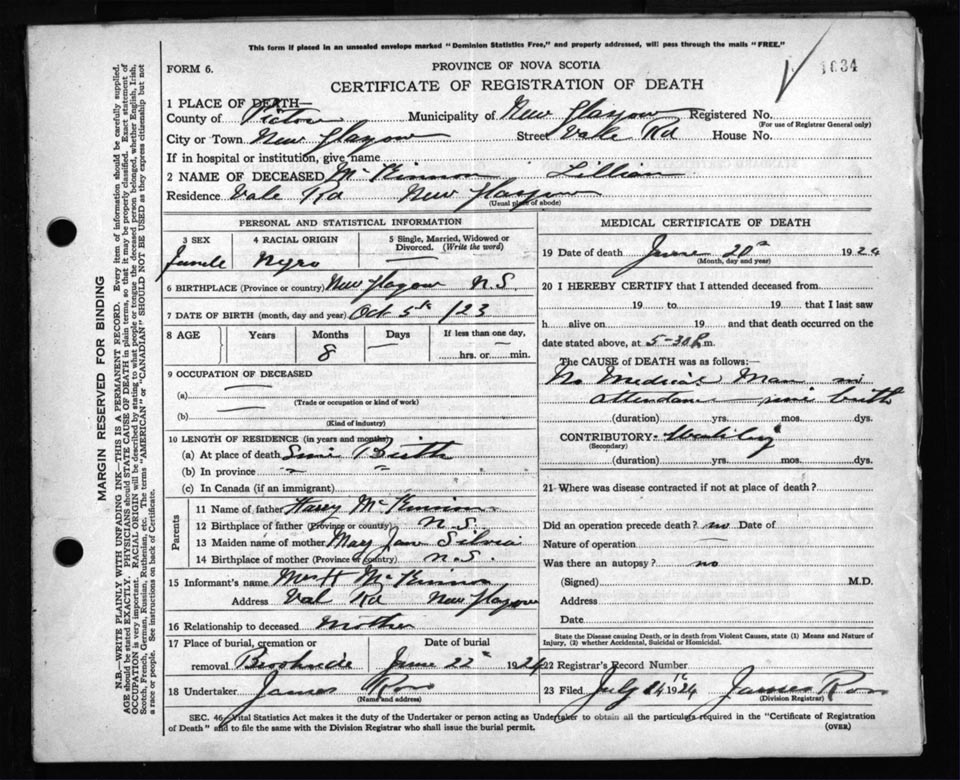 This form if placed in an unsealed envelope marked "Dominion Statistics Free," and properly addressed, will pass through the mails "FREE."
FORM 6.
PROVINCE OF NOVA SCOTIA
1634
CERTIFICATE OF REGISTRATION OF DEATH
1 PLACE OF DEATH—
County of Pictou Municipality of New Glasgow Registered No.
(For use of Registrar General only)
City or Town New Glasgow Street Vale Rd House No.
If in hospital or institution, give name
2 NAME OF DECEASED McKinnon Lillian
Residence Vale Rd New Glasgow
(Usual place of abode)
PERSONAL AND STATISTICAL INFORMATION
3 SEX 4 RACIAL ORIGIN 5 Single, Married, Widowed or Divorced. (Write the word)
Female Negro —
6 BIRTHPLACE (Province or country) New Glasgow N.S.
7 DATE OF BIRTH (month, day and year) Oct 5th /23
8 AGE Years Months Days If less than one day,
8 — hrs. or min.
9 OCCUPATION OF DECEASED
(a) —
(Trade or occupation or kind of work)
(b) —
(Kind of industry)
10 LENGTH OF RESIDENCE (in years and months)
(a) At place of death Since Birth
(b) In province " "
(c) In Canada (if an immigrant)
Parents
11 Name of father Harry McKinnon
12 Birthplace of father (Province or country) N.S.
13 Maiden name of mother May Jan Silvia
14 Birthplace of mother (Province or country) N.S.
15 Informant's name Mrs H McKinnon
Address Val Rd New Glasgow
16 Relationship to deceased Mother
17 Place of burial, cremation or removal Date of burial
June 22 1924
18 Undertaker James Ross
(Name and address)
MEDICAL CERTIFICATE OF DEATH
19 Date of death June 20th 1924
(Month, day and year)
20 I HEREBY CERTIFY that I attended deceased from
19 to 19 that I last saw
h alive on 19 and that death occurred on the
date stated above, at 5-30 P.m.
The CAUSE of DEATH was as follows:—
No Medical Man in
attendance since birth
(duration) yrs. mos. dys.
CONTRIBUTORY-
(Secondary)
(duration) yrs. mos. dys.
21 Where was disease contracted if not at place of death?
Did an operation precede death? no Date of
Nature of operation —
Was there an autopsy? no
(Signed) M.D.
Address
Date
State the Disease causing Death, or in death from Violent Causes, state (1) Means and Nature of Injury, (2) whether Accidental, Suicidal or Homicidal.
22 Registrar's Record Number
23 Filed July 1924 James Ross
(Division Registrar)
SEC. 46, Vital Statistics Act makes it the duty of the Undertaker or person acting as Undertaker to obtain all the particulars required in the "Certificate of Registration
of Death" and to file the same with the Division Registrar who shall issue the burial permit.
(OVER)
MARGIN RESERVED FOR BINDING
N.B.—WRITE PLAINLY WITH UNFADING INK—THIS IS A PERMANENT RECORD. Every item of information should be carefully supplied.
AGE should be stated EXACTLY. PHYSICIANS should STATE CAUSE OF DEATH in plain terms, so that it may be properly classified. Exact statement of
OCCUPATION is very important. RACIAL ORIGIN will be described by stating to what people or tongue the deceased person belonged, whether English, Irish,
Scotch, French, German, Russian, Ruthenian, etc. The terms "AMERICAN" or "CANADIAN" SHOULD NOT BE USED as they express citizenship but not
a race or people. See instructions on back of Certificate.